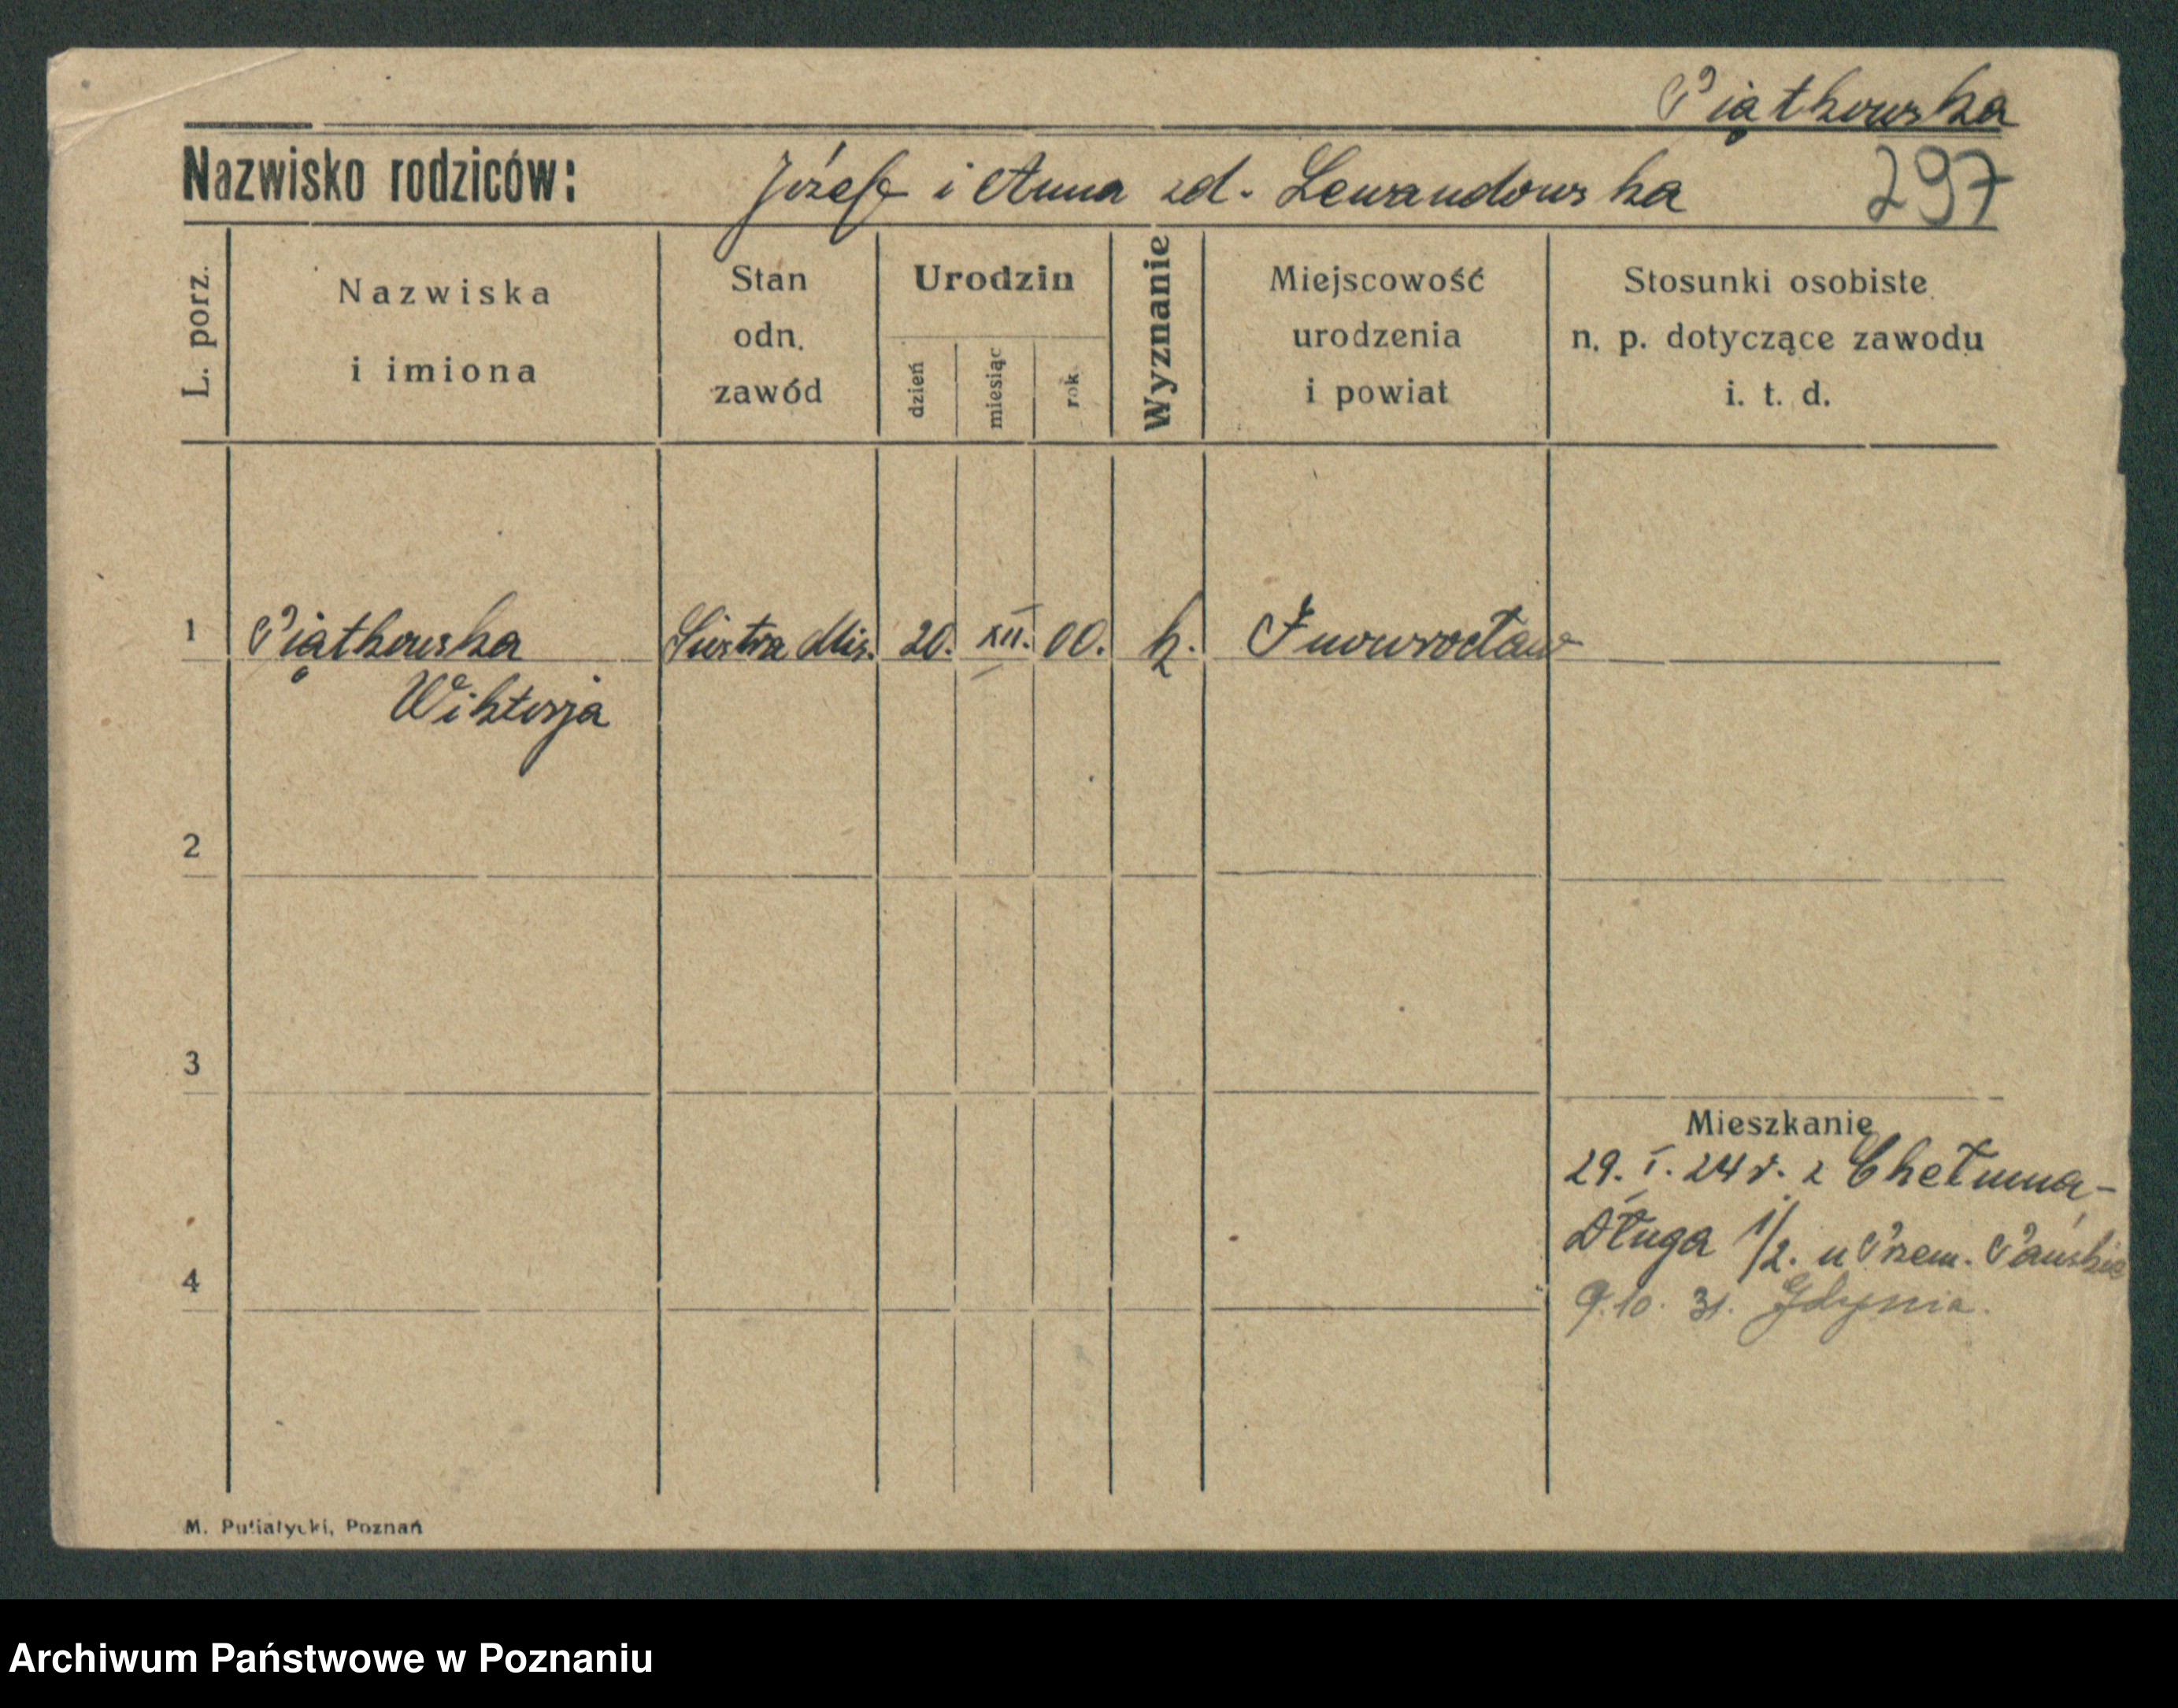 Piątkowska
Nazwisko rodziców: Józef i Anna zd. Lewandowska 297
L. porz.
Nazwiska
i imiona
Stan
odn.
zawód
Urodzin
dzień
miesiąc
rok
Wyznanie
Miejscowość
urodzenia
i powiat
Stosunki osobiste
n. p. dotyczące zawodu
i. t. d.
1 Piątkowska Siostra Mis. 20. XII. 00. k. Inowrocław
Wiktorja
2
3
Mieszkanie
29. I. 24 r. z Chełmna-
Długa 1/2. u Przem. Pańskie
4
9.10. 31. Gdynia.
M. Putiatycki, Poznań
Archiwum Państwowe w Poznaniu